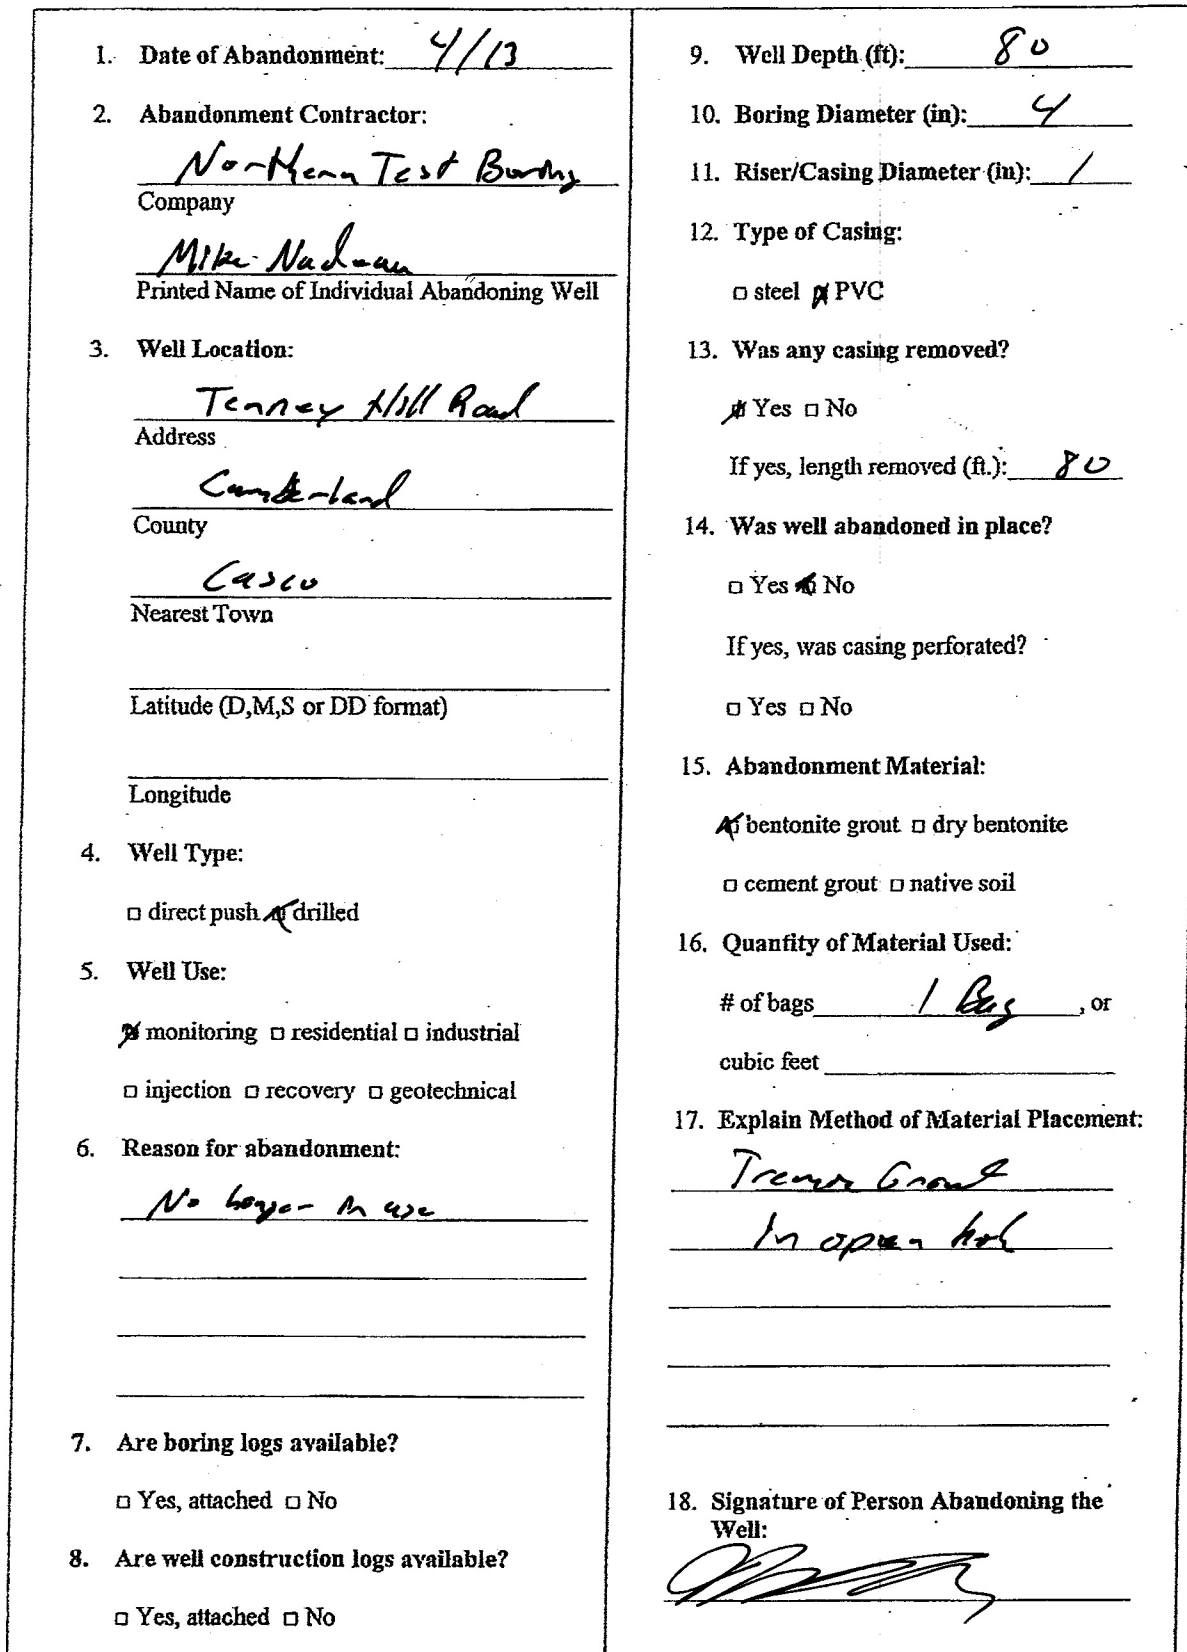 1. Date of Abandonment: 4/13
2. Abandonment Contractor:
Northern Test Boring
Company
Mike Nadeau
Printed Name of Individual Abandoning Well
3. Well Location:
Tenney Hill Road
Address
Cumberland
County
Casco
Nearest Town
Latitude (D,M,S or DD format)
Longitude
4. Well Type:
□ direct push ☒ drilled
5. Well Use:
☒ monitoring □ residential □ industrial
□ injection □ recovery □ geotechnical
6. Reason for abandonment:
No longer in use
7. Are boring logs available?
□ Yes, attached □ No
8. Are well construction logs available?
□ Yes, attached □ No
9. Well Depth (ft): 80
10. Boring Diameter (in): 4
11. Riser/Casing Diameter (in): 1
12. Type of Casing:
□ steel ☒ PVC
13. Was any casing removed?
☒ Yes □ No
If yes, length removed (ft.): 80
14. Was well abandoned in place?
□ Yes ☒ No
If yes, was casing perforated?
□ Yes □ No
15. Abandonment Material:
☒ bentonite grout □ dry bentonite
□ cement grout □ native soil
16. Quantity of Material Used:
# of bags 1 Bag, or
cubic feet
17. Explain Method of Material Placement:
Grout
In open hole
18. Signature of Person Abandoning the
Well: